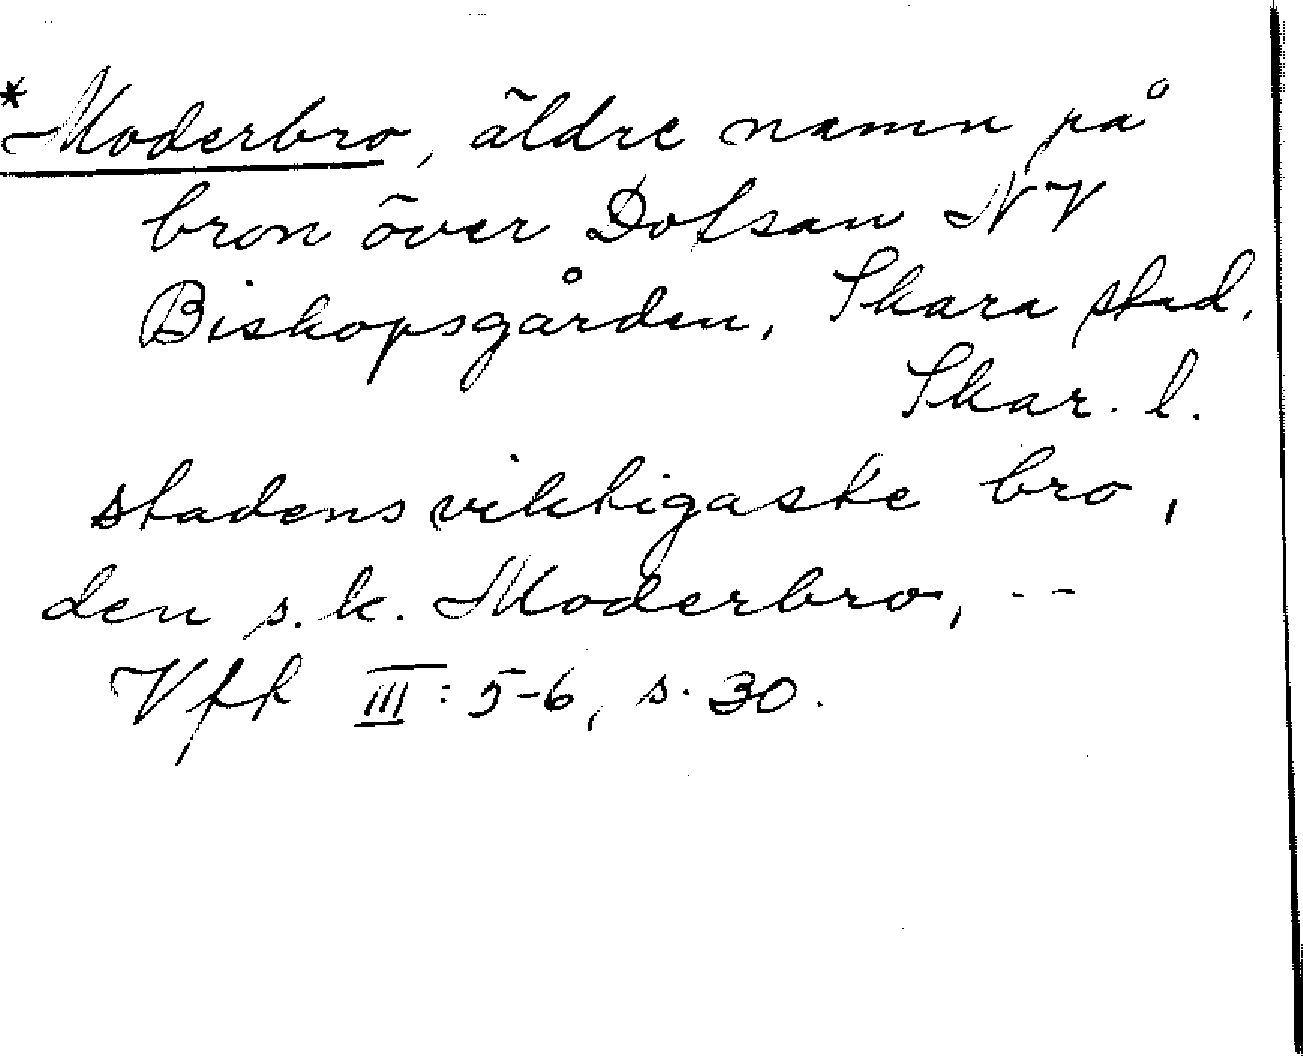 *Moderbro, äldre namn på
bron över Dofsan NV
Biskopsgården, Skara stad.
Skar. l.
stadens viktigaste bro,
den s.k. Moderbro, --
Vfk III: 5-6, s. 30.